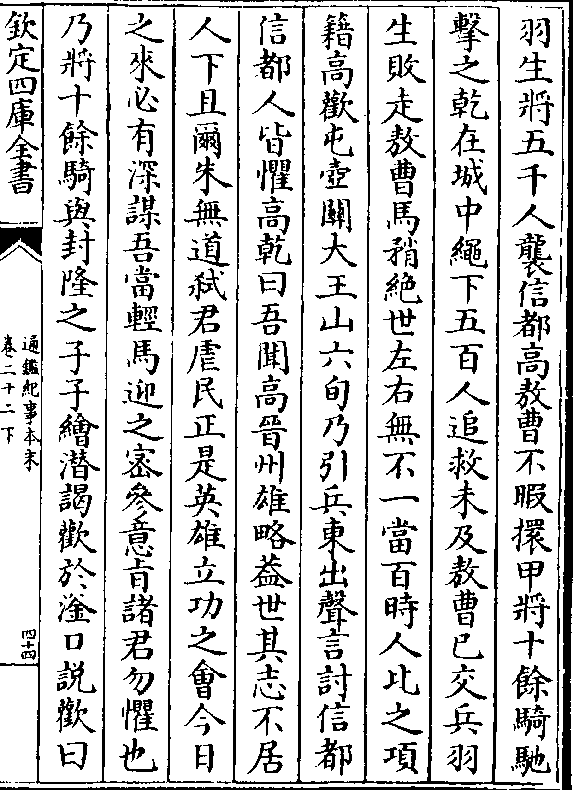 羽生將五千人襲信都高敖曹不暇擐甲將十餘騎馳
擊之乾在城中繩下五百人追救未及敖曹已交兵羽
生敗走敖曹馬矟絶世左右無不一當百時人比之項
籍高歡屯壺關大王山六旬乃引兵東出聲言討信都
信都人皆懼高乾曰吾聞高晉州雄略葢世其志不居
人下且爾朱無道弑君虐民正是英雄立功之會今日
之來必有深謀吾當輕馬迎之宻參意旨諸君勿懼也
乃將十餘騎與封隆之子子繪潜謁歡於滏口説歡曰
欽定四庫全書
通鑑紀事本末
卷二十二下
四十四